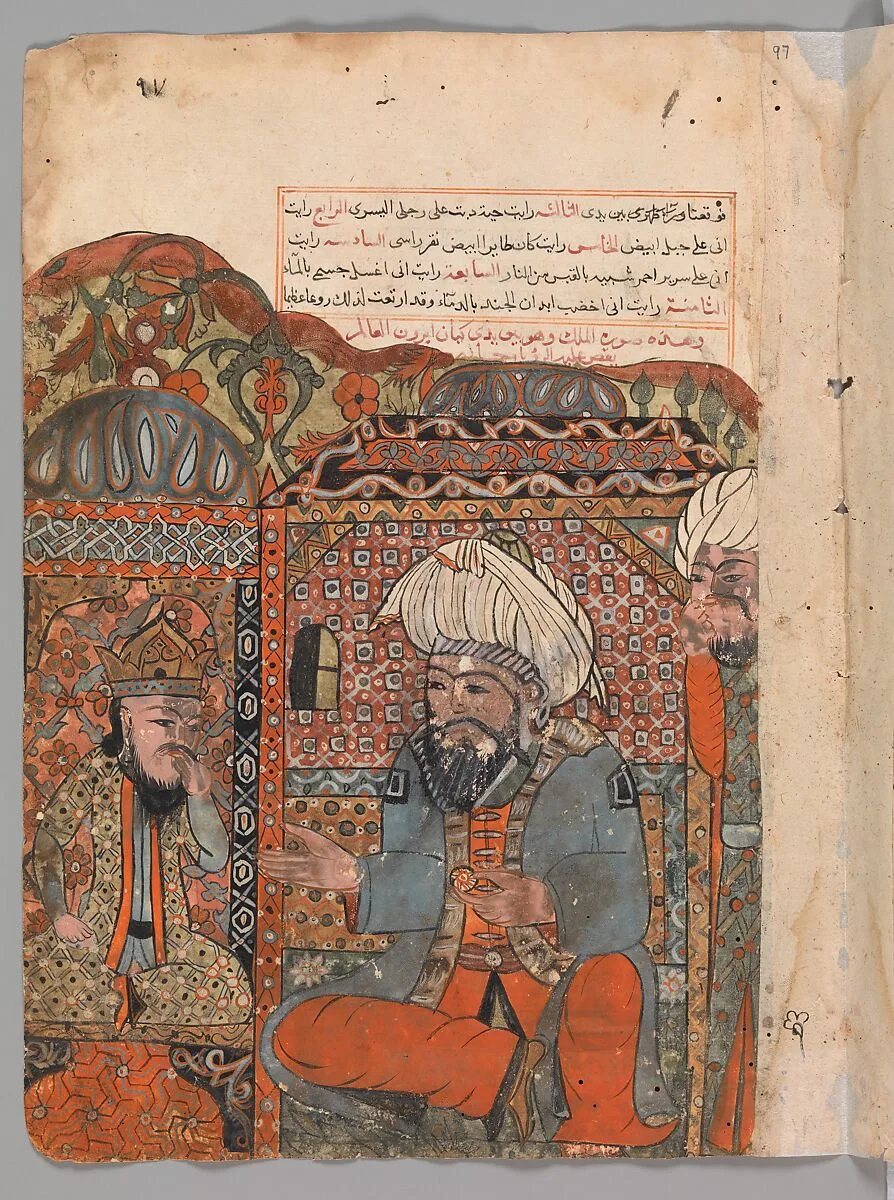 97
٩٧
بين يدى الثالثه رايت حية دبت على رجلى اليسرى الرابع رايت
انى على جبل ابيض الخامس رايت كان طايرا ابيض نقر راسى السادسه رايت
انى على سرير احمر شبيه بالقبس من النار السابعة رايت انى اغسل جسمى بالماء
الثامنة رايت انى اخضب ابدان الجند بالدماء وقد ارتعت لذلك روعا عظيما
وهذه صورة الملك وهو بين يدى كبان ايرون العالم
يقص عليه الرؤيا